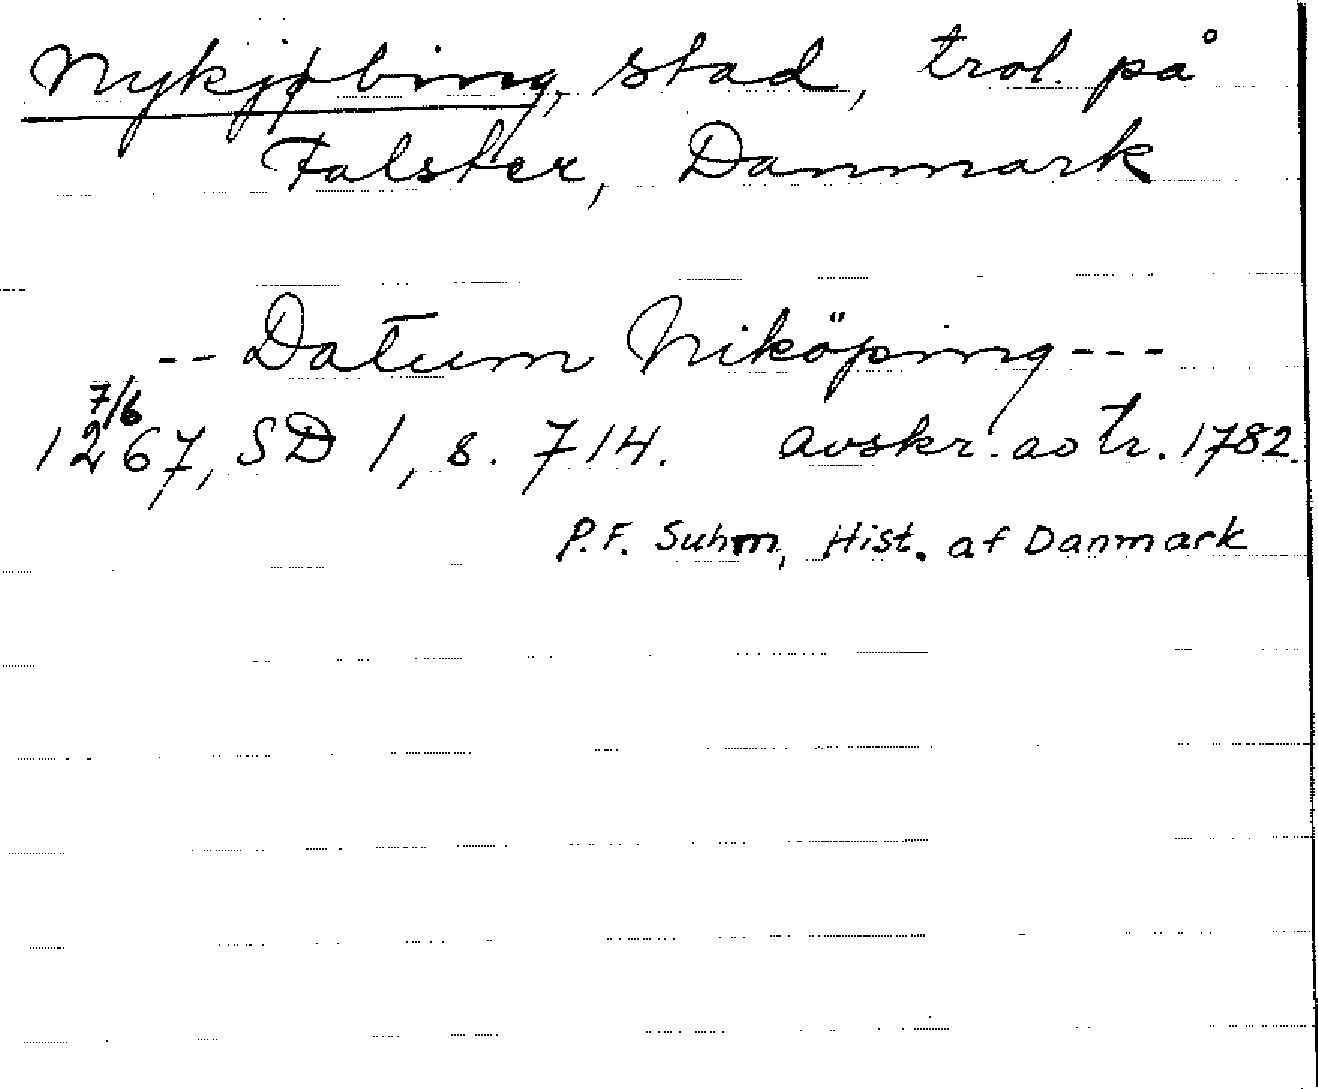 Nykjøbing, stad, trol. på
Falster, Danmark
-- Datum Niköping ---
7/6
1267, SD 1, s. 714. avskr. ao tr. 1782.
P.F. Suhm, Hist. af Danmark